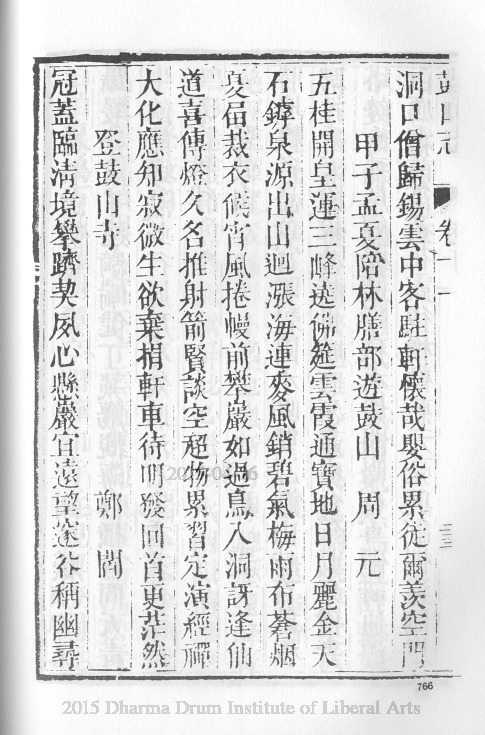 山志 卷
洞口僧歸錫雲中客駐軒懷哉嬰俗累從爾羨空門
甲子孟夏陪林膳部遊鼓山 周元
五桂開皇運三峰遶佛筵雲霞通寶地日月麗金天
石罅泉源出山迴漲海連麥風銷碧氣梅雨布蒼烟
夏畱裁衣候宵風捲幔前攀巖如過鳥入洞訝逢仙
道喜傳燈久名推射箭賢談空超物累習定演經禪
大化應知寂微生欲棄捐軒車待明發回首更茫然
登鼓山寺 鄭
冠蓋臨清境攀躋契夙心縣巖宜遠望邃谷稱幽尋
766
2015 Dharma Drum Institute of Liberal Arts